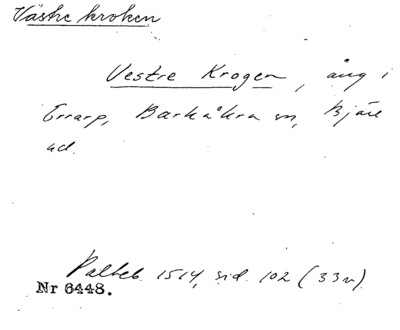 Västre kroken
Vestre Krogen, äng i
Errarp, Barkåkra sn, Bjäre
hd.
Palteb. 1514, sid. 102 (33v)
Nr 6448.